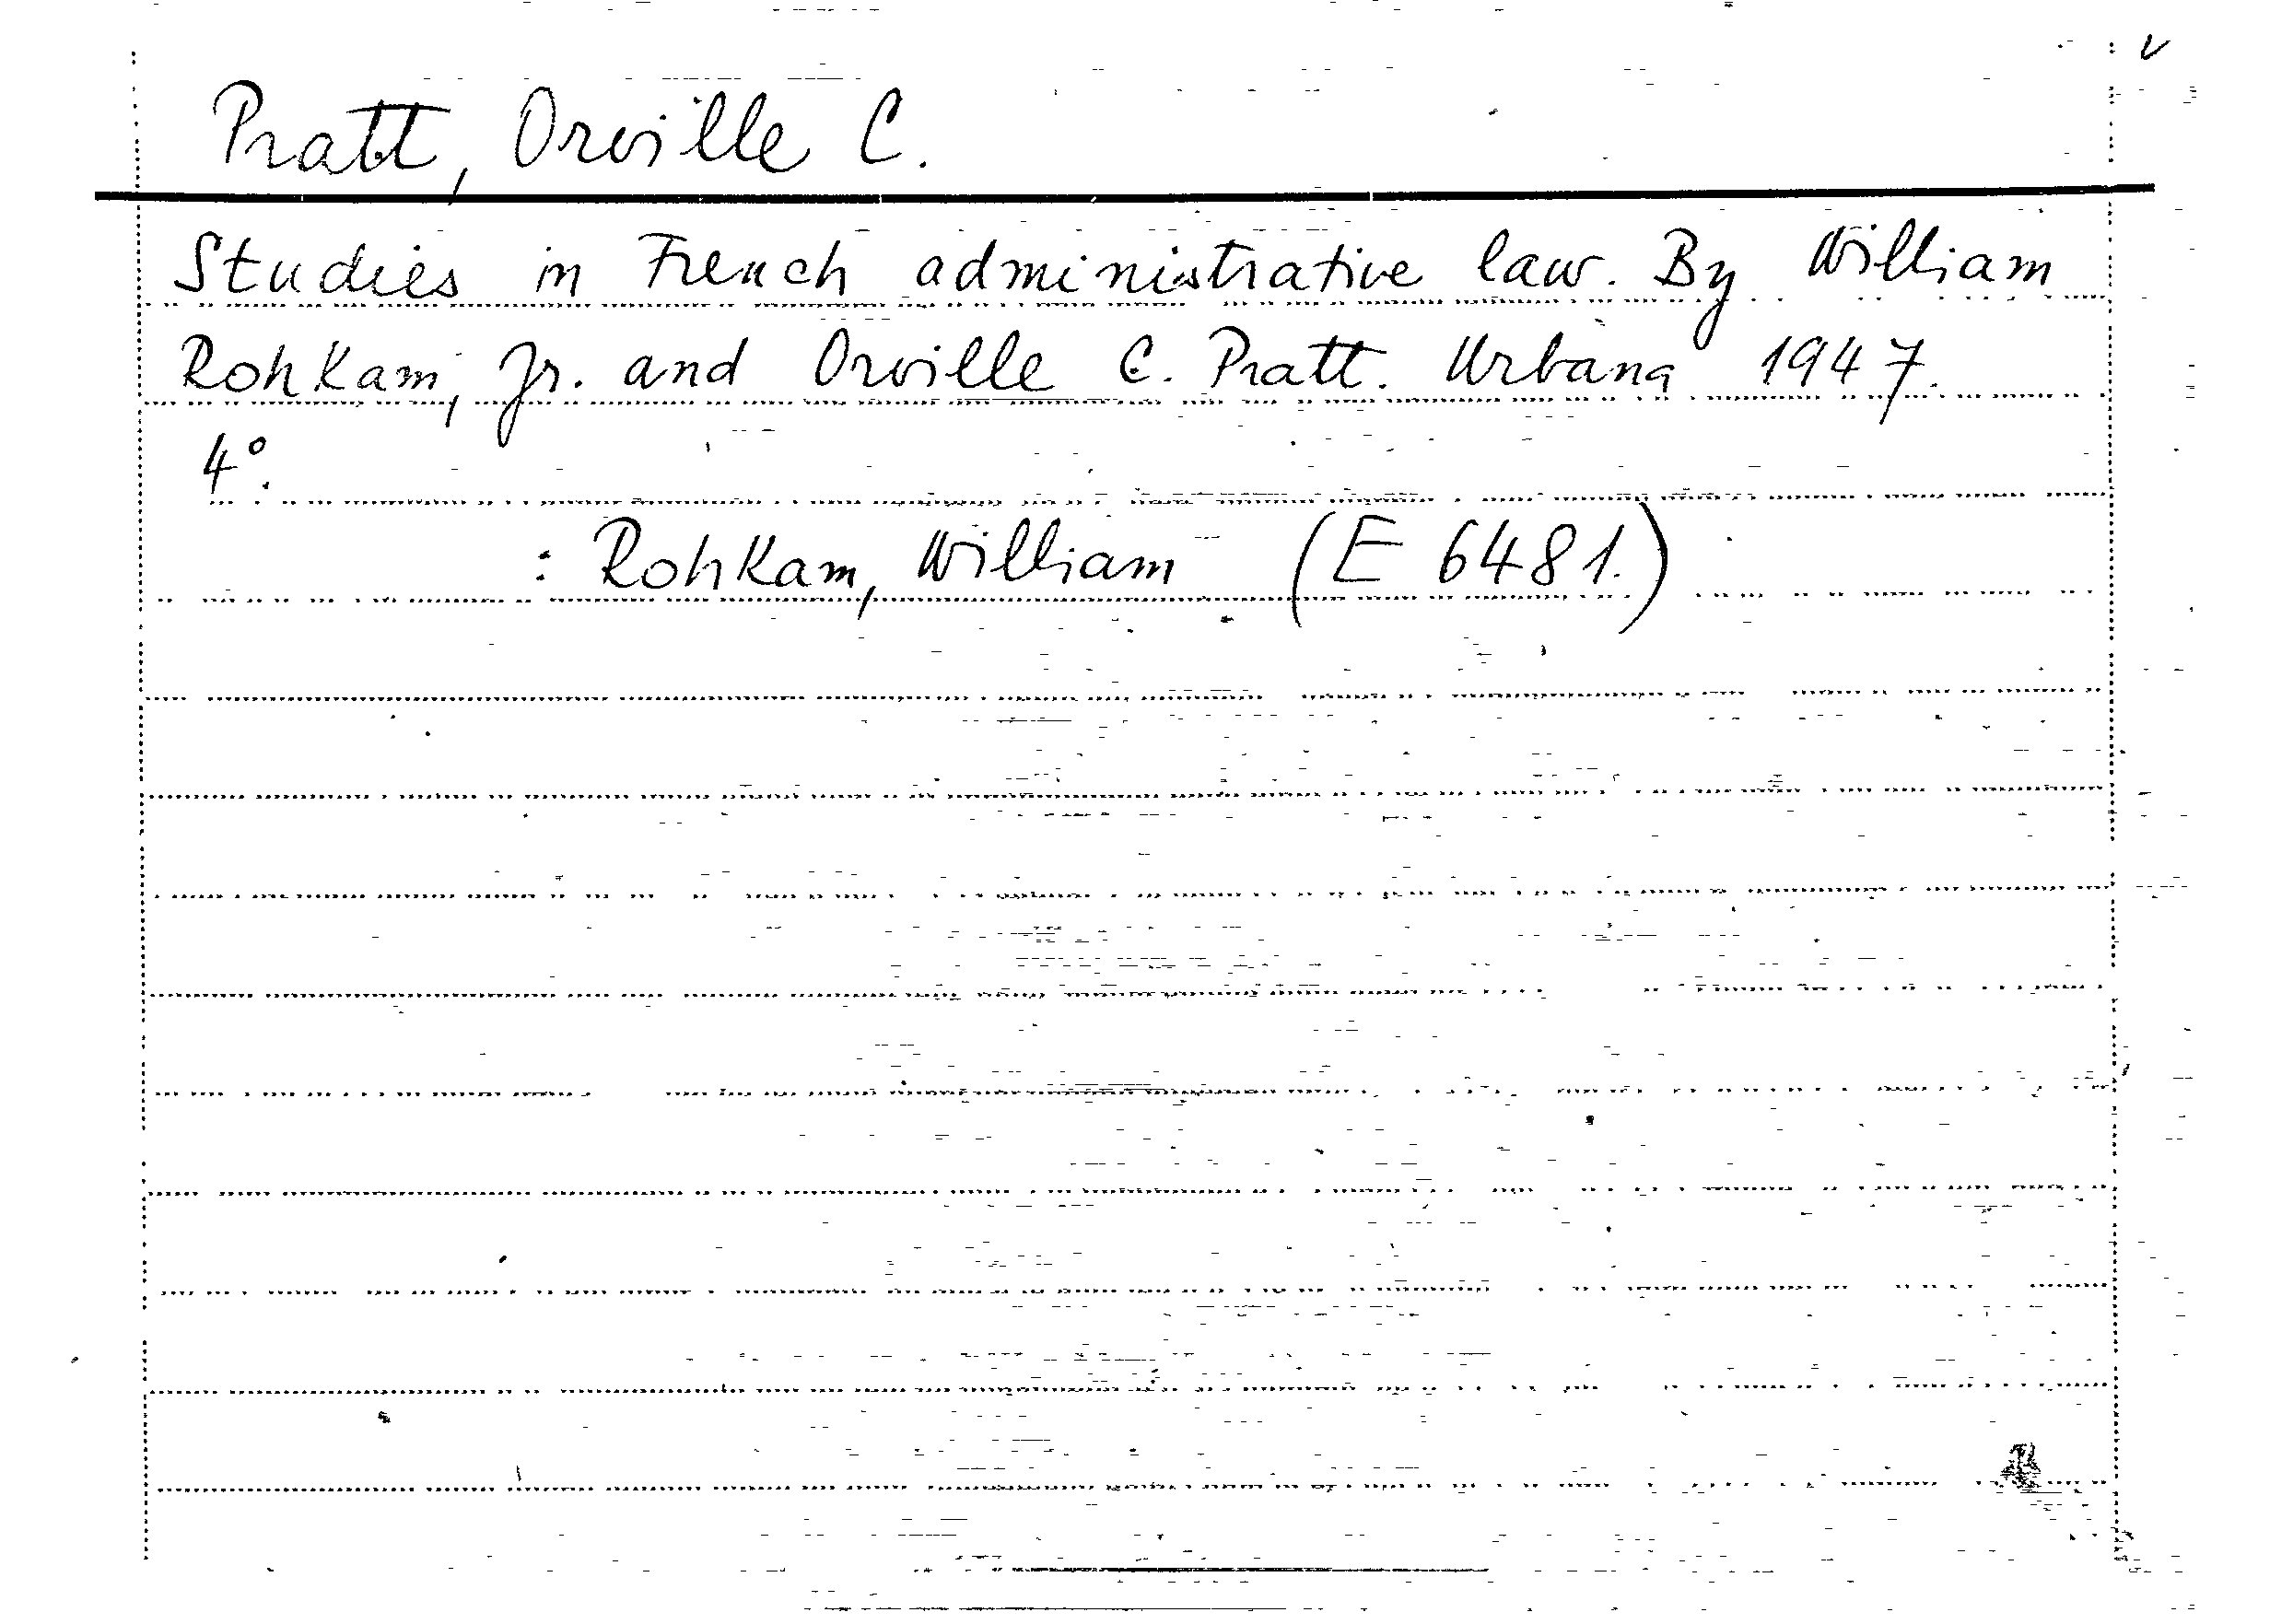 v
Pratt, Orville C.
Studies in French administrative law. By William
Rohkam, Jr. and Orville C. Pratt. Urbana 1947.
4°.
: Rohkam, William (E 6481.)